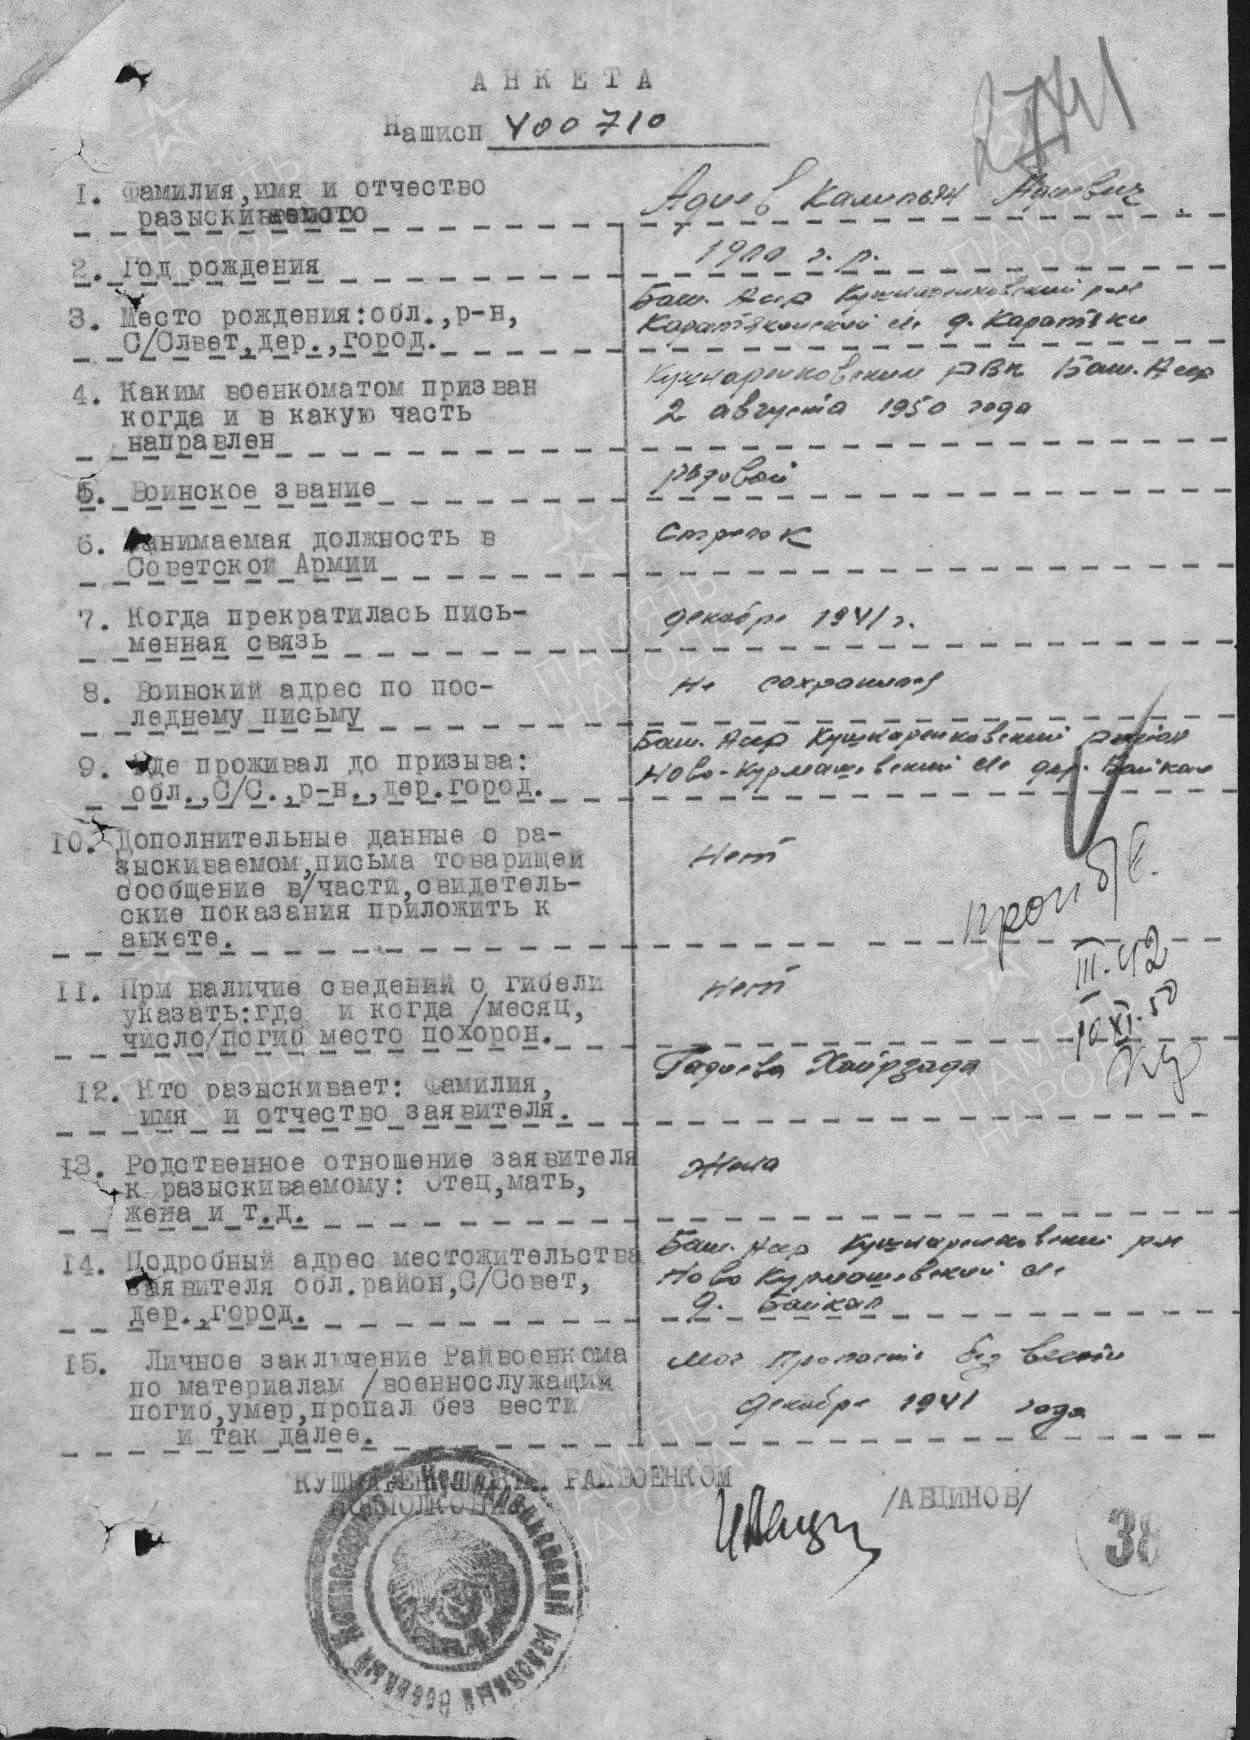 АНКЕТА
Нашисп 400710
1. Фамилия,имя и отчество
разыскиваемого
Адиев Калимьян Адиевич
2. Год рождения
1900 г. р.
3. Место рождения:обл.,р-н,
С/Слвет,дер.,город.
Баш. Асср Кушнаренковский р-н
д. Каратяки
4. Каким военкоматом призван
когда и в какую часть
направлен
Кушнаренковским РВК Баш. Асср
2 августа 1950 года
5. Воинское звание
рядовой
6. Занимаемая должность в
Советской Армии
Стрелок
7. Когда прекратилась пись-
менная связь
декабрь 1941 г.
8. Воинский адрес по пос-
леднему письму
Не сохранился
9. Где проживал до призыва:
обл.,С/С.,р-н.,дер.город.
Баш. Асср Кушнаренковский район
Ново-Курмашевский с/с дер. Байкал
10. Дополнительные данные о ра-
зыскиваемом,письма товарищей
сообщение в/части,свидетель-
ские показания приложить к
анкете.
Нет
проп б/в.
III.42
11. При наличие сведений о гибели
указать:где и когда /месяц,
число/погиб место похорон.
Нет
10 XI.50
12. Кто разыскивает: Фамилия,
имя и отчество заявителя.
Гадиева Хайрзада
13. Родственное отношение заявителя
к разыскиваемому: Отец,мать,
жена и т.д.
Жена
14. Подробный адрес местожительства
заявителя обл.район,С/Совет,
дер.,город.
Баш. Асср Кушнаренковский р-н
Ново Курмашевский с/с
д. Байкал
15. Личное заключение Райвоенкома
по материалам /военнослужащий
погиб,умер,пропал без вести
и так далее.
Мог пропасть без вести
декабрь 1941 года
КУШНАРЕНКОВСКИЙ РАЙВОЕНКОМ
ПОДПОЛКОВНИК
/АВЦИНОВ/
38
Кушнаренковский районный военный комиссариат
ПАМЯТЬ
НАРОДА